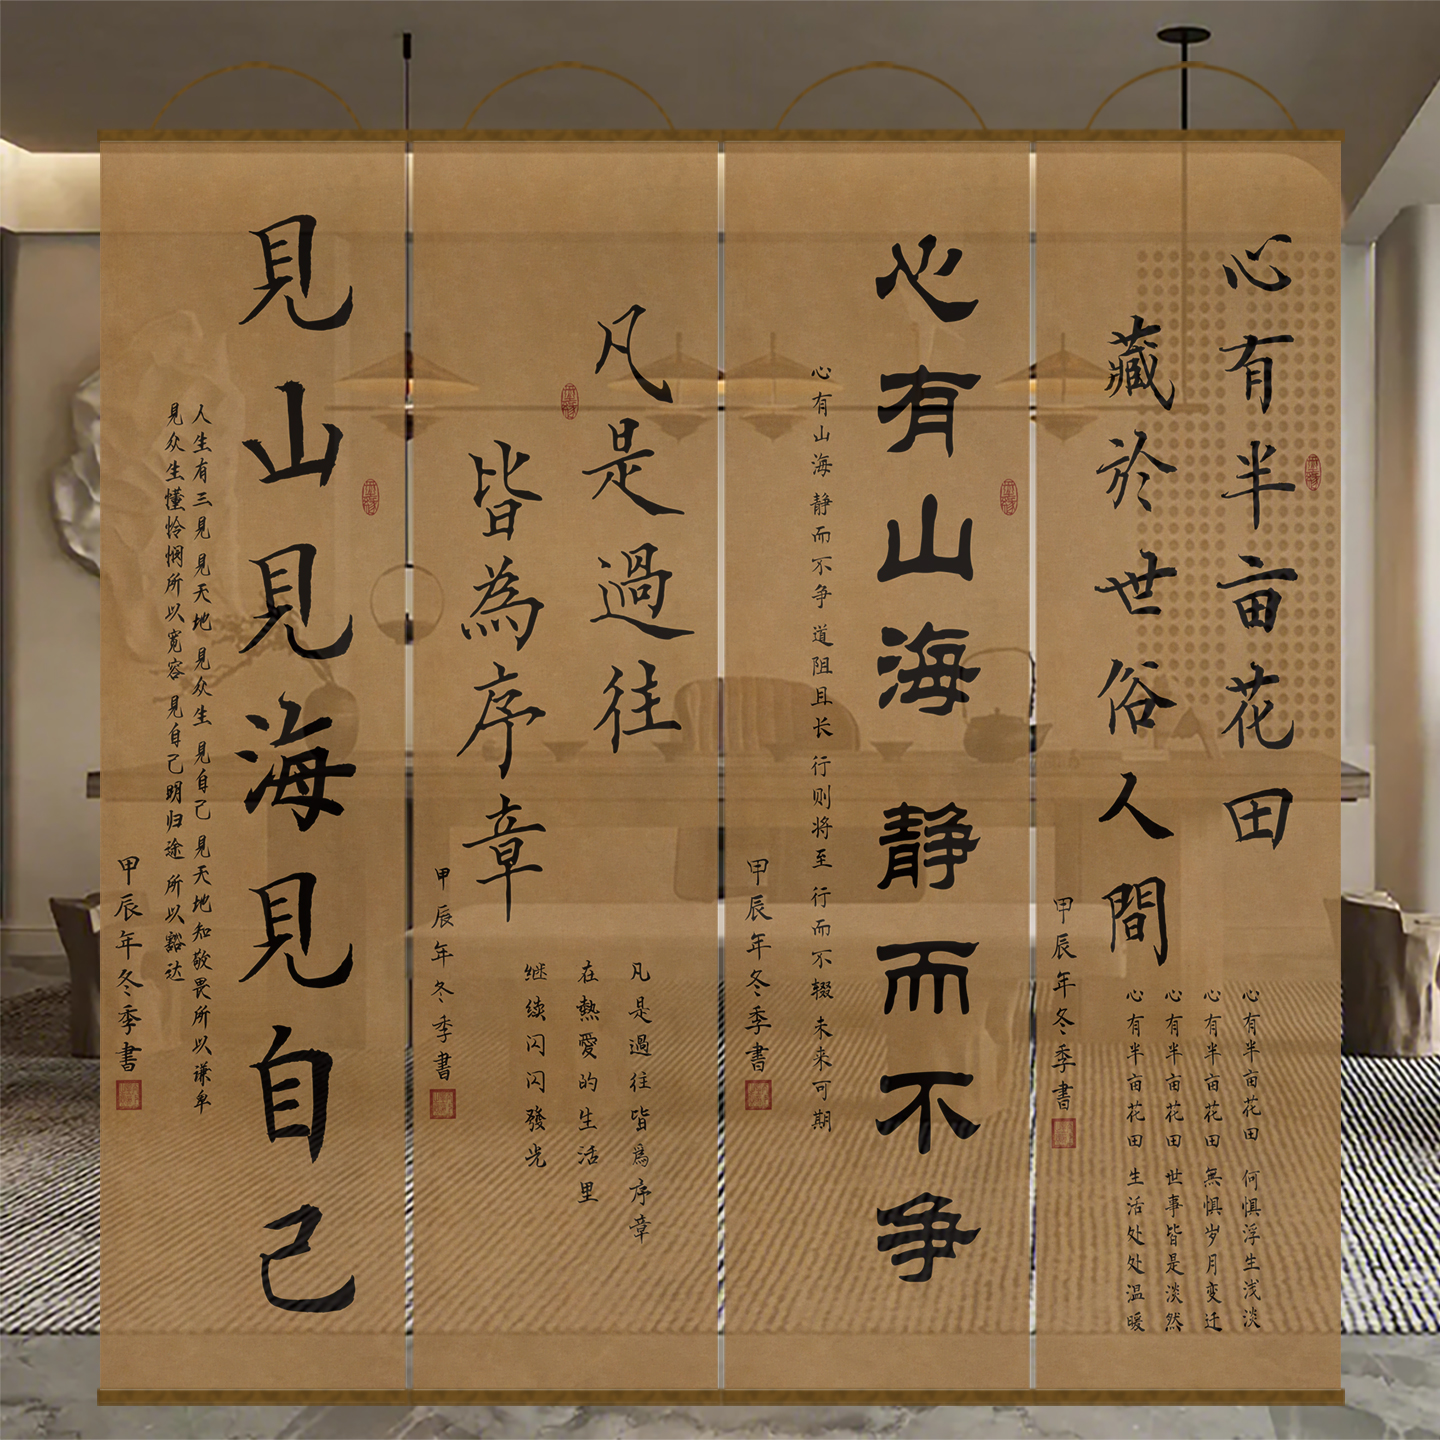 心有半亩花田
藏於世俗人間
心有半亩花田 何惧浮生浅淡
心有半亩花田 無惧岁月变迁
心有半亩花田 世事皆是淡然
心有半亩花田 生活处处温暖
甲辰年冬季書
心有山海静而不争
心有山海 静而不争 道阻且长 行则将至 行而不辍 未来可期
甲辰年冬季書
凡是過往
皆為序章
凡是過往皆爲序章
在熱愛的生活里
继续闪闪發光
甲辰年冬季書
見山見海見自己
人生有三見 見天地 見众生 見自己 見天地知敬畏所以谦卑
見众生懂怜悯所以宽容 見自己明归途 所以豁达
甲辰年冬季書